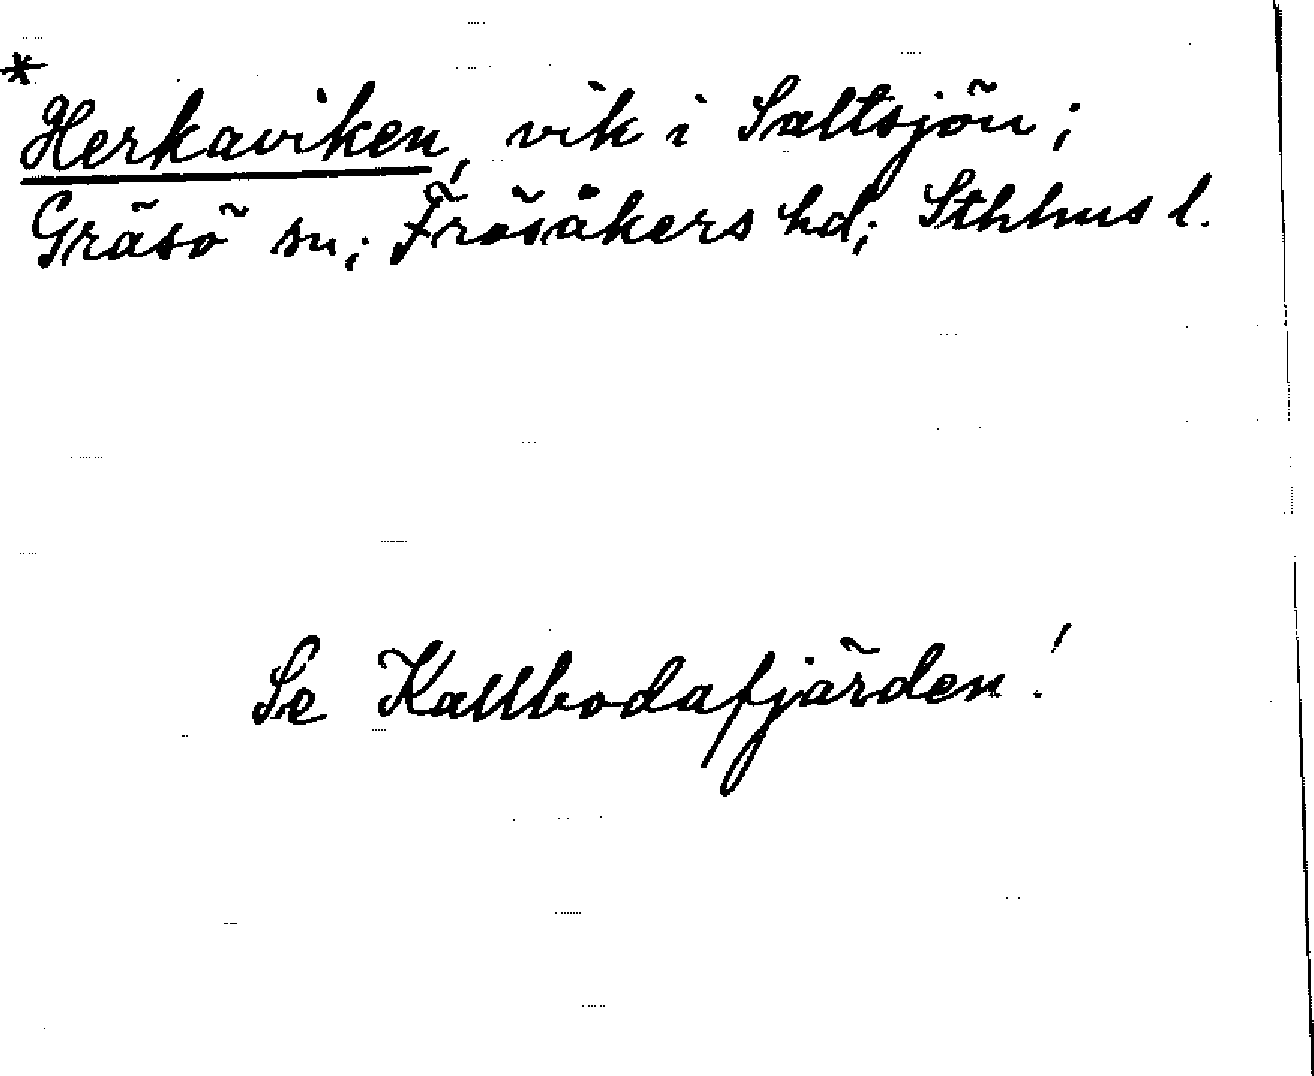 *
Herkaviken, vik i Saltsjön;
Gräsö sn; Frösåkers hd; Sthhus l.
Se Kallbodafjärden!